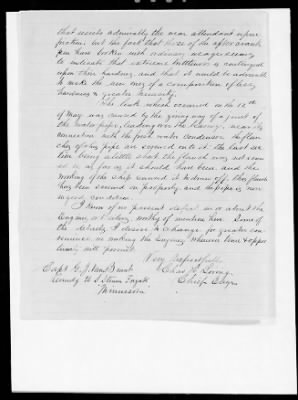 that resists admirably the wear attendant upon
friction but the fact that three of the aforesaid
pins have broken with ordinary usage seems
to indicate that extreme brittleness is contingent
upon their hardening, and that it would be advisable
to make the new ones of a composition of less
hardness & greater tenacity.
The leak which occurred on the 12th
of May was caused by the giving way of a joint of
the water pipe, leading over the Kelson's, near its
connection with the fresh water condenser the flan
ches of this pipe are screwed onto it. The last sec
tion being a little short the flanch was not screw
ed on as far as it should have been and the
working of the ship caused it to draw off. This flanch
has been secured on properly and the pipe is now
in good condition.
I know of no present defect in or about the
Engines, or belonging worthy of mention here. Some of
the details, I desire to change for greater con
venience in working the Engines whenever time & oppor
tunity will permit.
Very respectfully
Chas H Loring
Chief Engr
Capt G. J. Van Brunt
Comdg U S Steam Frigate
Minnesota